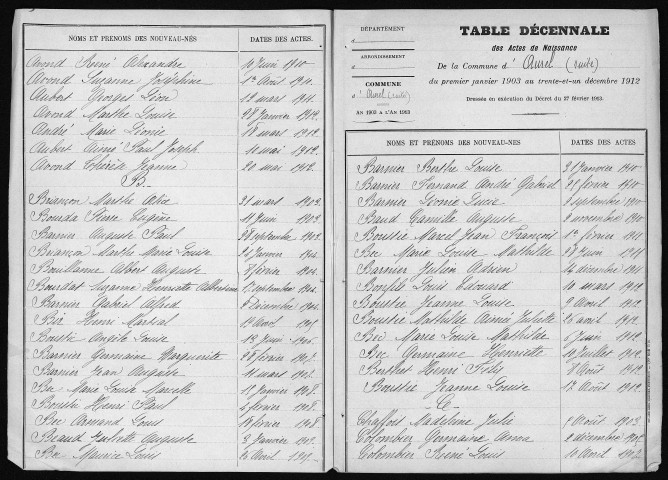 NOMS ET PRÉNOMS DES NOUVEAU-NÉS DATES DES ACTES
Avond René Alexandre 10 Juin 1910
Avond Suzanne Joséphine 1er Août 1911
Aubert Georges Léon 12 mars 1911
Avond Marthe Louise 28 Janvier 1912
André Marie Léonie 18 mars 1912
Aubert Aimé Paul Joseph 11 mai 1912
Avond Thérèse Jeanne 20 mai 1912
B
Briançon Marthe Alix 21 mars 1903
Bounda Pierre Eugène 11 Juin 1903
Barnier Auguste Paul 28 septembre 1903
Briançon Marthe Marie Louise Janvier 1904
Boullanne Albert Auguste 8 février 1904
Bourdat Suzanne Henriette septembre 1904
Barnier Gabriel Alfred Décembre 1904
Bir Henri Martial 19 Avril 1905
Boustie Angèle Louise 12 Juin 1906
Barnier Germaine Marguerite 28 février 1907
Barnier Jean Auguste 11 mars 1907
Bec Marie Louise Marcelle 11 Janvier 1908
Boustie Henri Paul 5 février 1908
Bec Armand Louis 18 février 1908
Beaud Juliette Auguste 9 Janvier 1909
Bec Maurice Louis Avril 1909
DÉPARTEMENT
ARRONDISSEMENT
COMMUNE
d'Aurel (suite)
AN 1903 A L'AN 1913
TABLE DÉCENNALE
des Actes de Naissance
De la Commune d'Aurel (suite)
du premier janvier 1903 au trente-et-un décembre 1912
Dressée en exécution du Décret du 27 février 1913.
NOMS ET PRÉNOMS DES NOUVEAU-NÉS DATES DES ACTES
Barnier Berthe Louise 21 Janvier 1910
Barnier Fernand André Gabriel 25 février 1910
Barnier Léonie Lucie septembre 1910
Baud Camille Auguste 9 novembre 1910
Boustie Marcel Jean François 1er février 1911
Bec Marie Louise Mathilde 28 Juin 1911
Barnier Julien Adrien 14 décembre 1911
Bompié Louis Edouard 10 mars 1912
Boustie Jeanne Louise 9 Avril 1912
Boustie Mathilde Aimée Juliette 26 avril 1912
Bec Marie Louise Mathilde 6 Juin 1912
Bec Germaine Henriette 10 Juillet 1912
Berthet Henri Félix 8 Août 1912
Boustie Jeanne Louise 13 Août 1912
C
Chaffois Madeleine Julie Août 1903
Colombier Germaine Anna 9 décembre
Colombier René Louis 10 Avril 1907